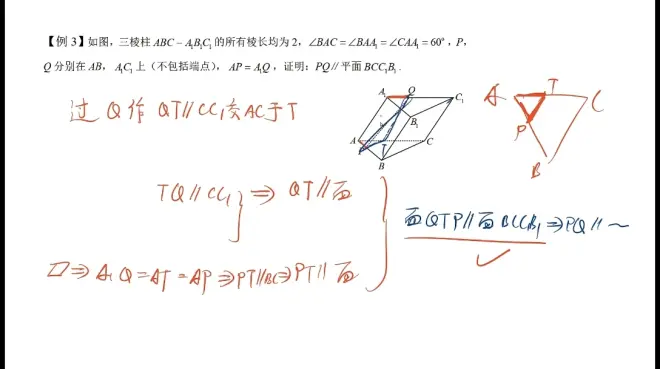 【例 3】如图，三棱柱 ABC－A₁B₁C₁ 的所有棱长均为 2，∠BAC＝∠BAA₁＝∠CAA₁＝60°，P，
Q 分别在 AB，A₁C₁ 上（不包括端点），AP＝A₁Q，证明：PQ// 平面 BCC₁B₁．
过 Q 作 QT//CC₁交AC于T
A₁ Q C₁
B₁
A T C
B
A T C
P
B
TQ//CC₁ ⇒ QT//面
▱⇒A₁Q=AT=AP⇒PT//BC⇒PT//面
面QTP//面BCC₁B₁⇒PQ//~